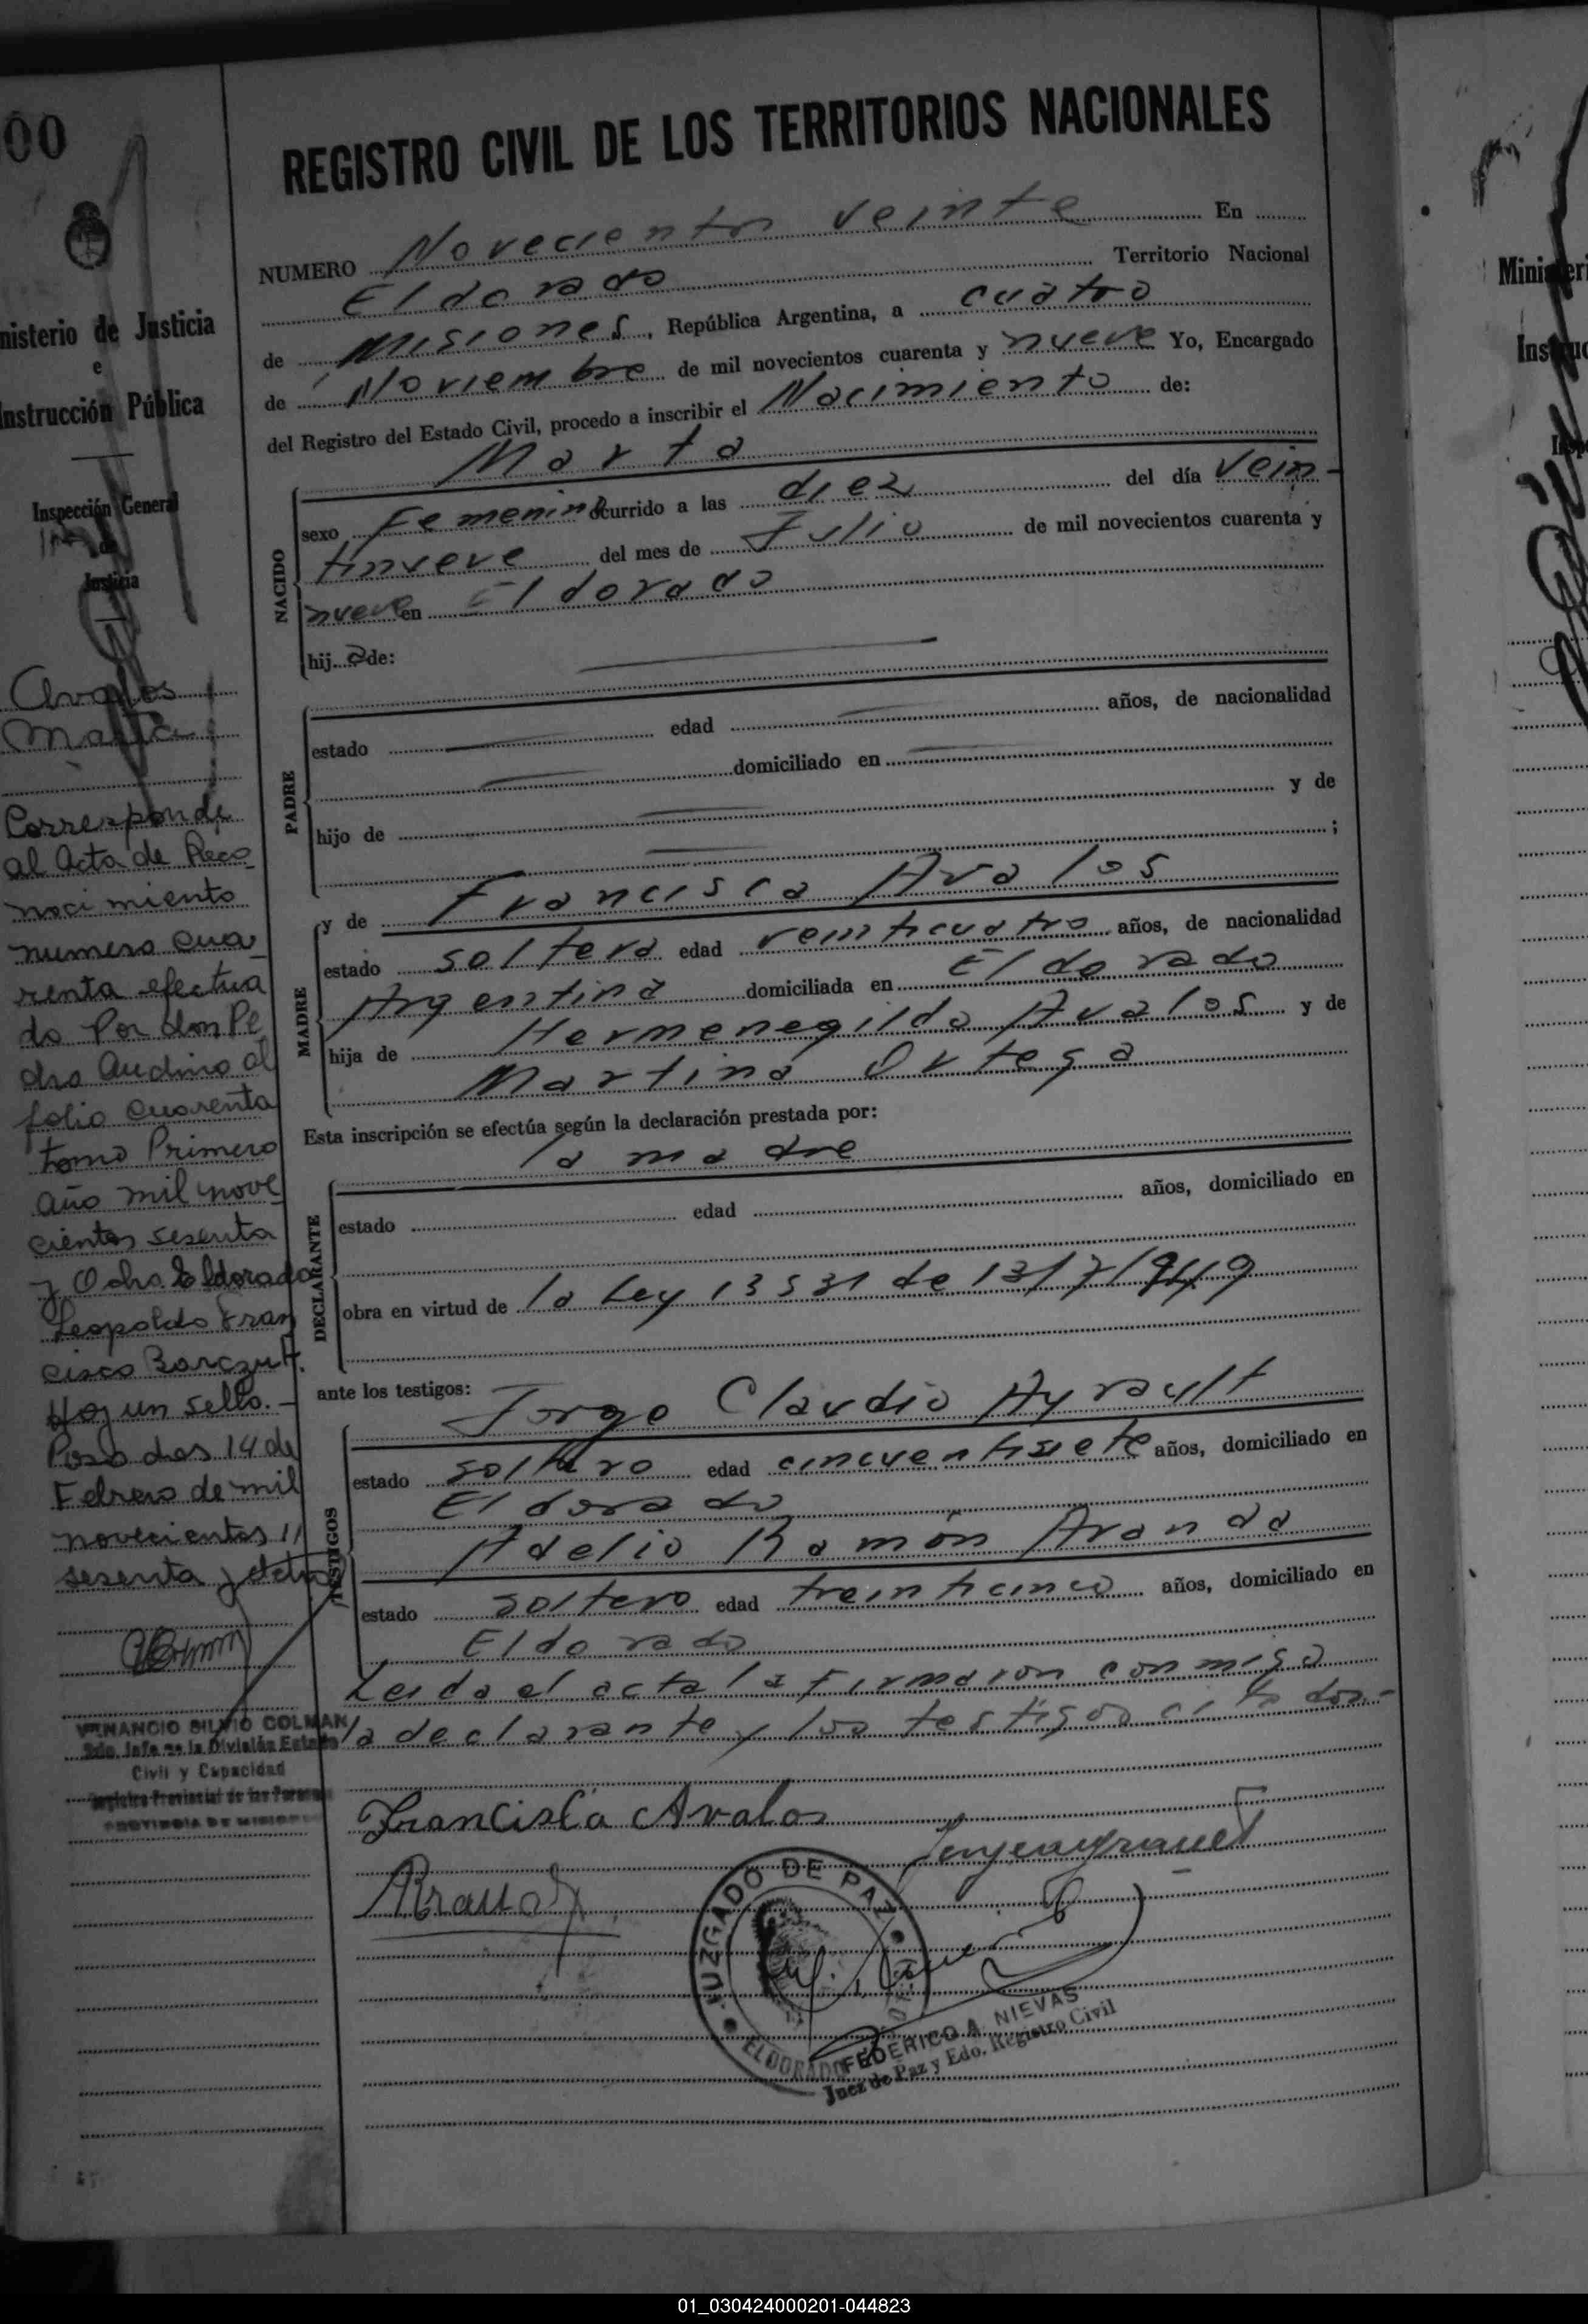 00
Ministerio de Justicia
e
Instrucción Pública
Inspección General
de
Justicia
Avalos
Marta
Corresponde
al Acta de Reco
noci miento
numero cua
renta efectua
do Por don Pe
dro Audino al
folio cuarenta
tomo Primero
año mil nove
cientos sesenta
y Ocho. Eldorado
Leopoldo Fran
cisco
Hay un sello. -
Posadas 14 de
Febrero de mil
novecientos //
sesenta y ocho
VENANCIO SILVIO COLMAN
Civil y Capacidad
REGISTRO CIVIL DE LOS TERRITORIOS NACIONALES
NUMERO Novecientos veinte En
Eldorado Territorio Nacional
de Misiones, República Argentina, a cuatro
de Noviembre de mil novecientos cuarenta y nueve Yo, Encargado
del Registro del Estado Civil, procedo a inscribir el Nacimiento de:
Marta
NACIDO
sexo Femenino ocurrido a las diez del día vein-
tinueve del mes de Julio de mil novecientos cuarenta y
nueve en Eldorado
hij a de:
PADRE
estado edad años, de nacionalidad
domiciliado en
hijo de y de
;
MADRE
y de Francisca Avalos
estado soltera edad veinticuatro años, de nacionalidad
Argentina domiciliada en Eldorado
hija de Hermenegildo Avalos y de
Martina Ortega
Esta inscripción se efectúa según la declaración prestada por:
la madre
DECLARANTE
estado edad años, domiciliado en
obra en virtud de la Ley 13531 de 13/7/949
ante los testigos:
Jorge Claudio Ayrault
TESTIGOS
estado soltero edad cincuentisiete años, domiciliado en
Eldorado
Adelio Ramón Aranda
estado soltero edad treinticinco años, domiciliado en
Eldorado
Leida el acta la firmaron conmigo
la declarante y los testigos citados.-
Francisca Avalos
JUZGADO DE PAZ
ELDORADO
FEDERICO A. NIEVAS
Juez de Paz y Edo. Registro Civil
Minister
Instruc
Insp
01_030424000201-044823